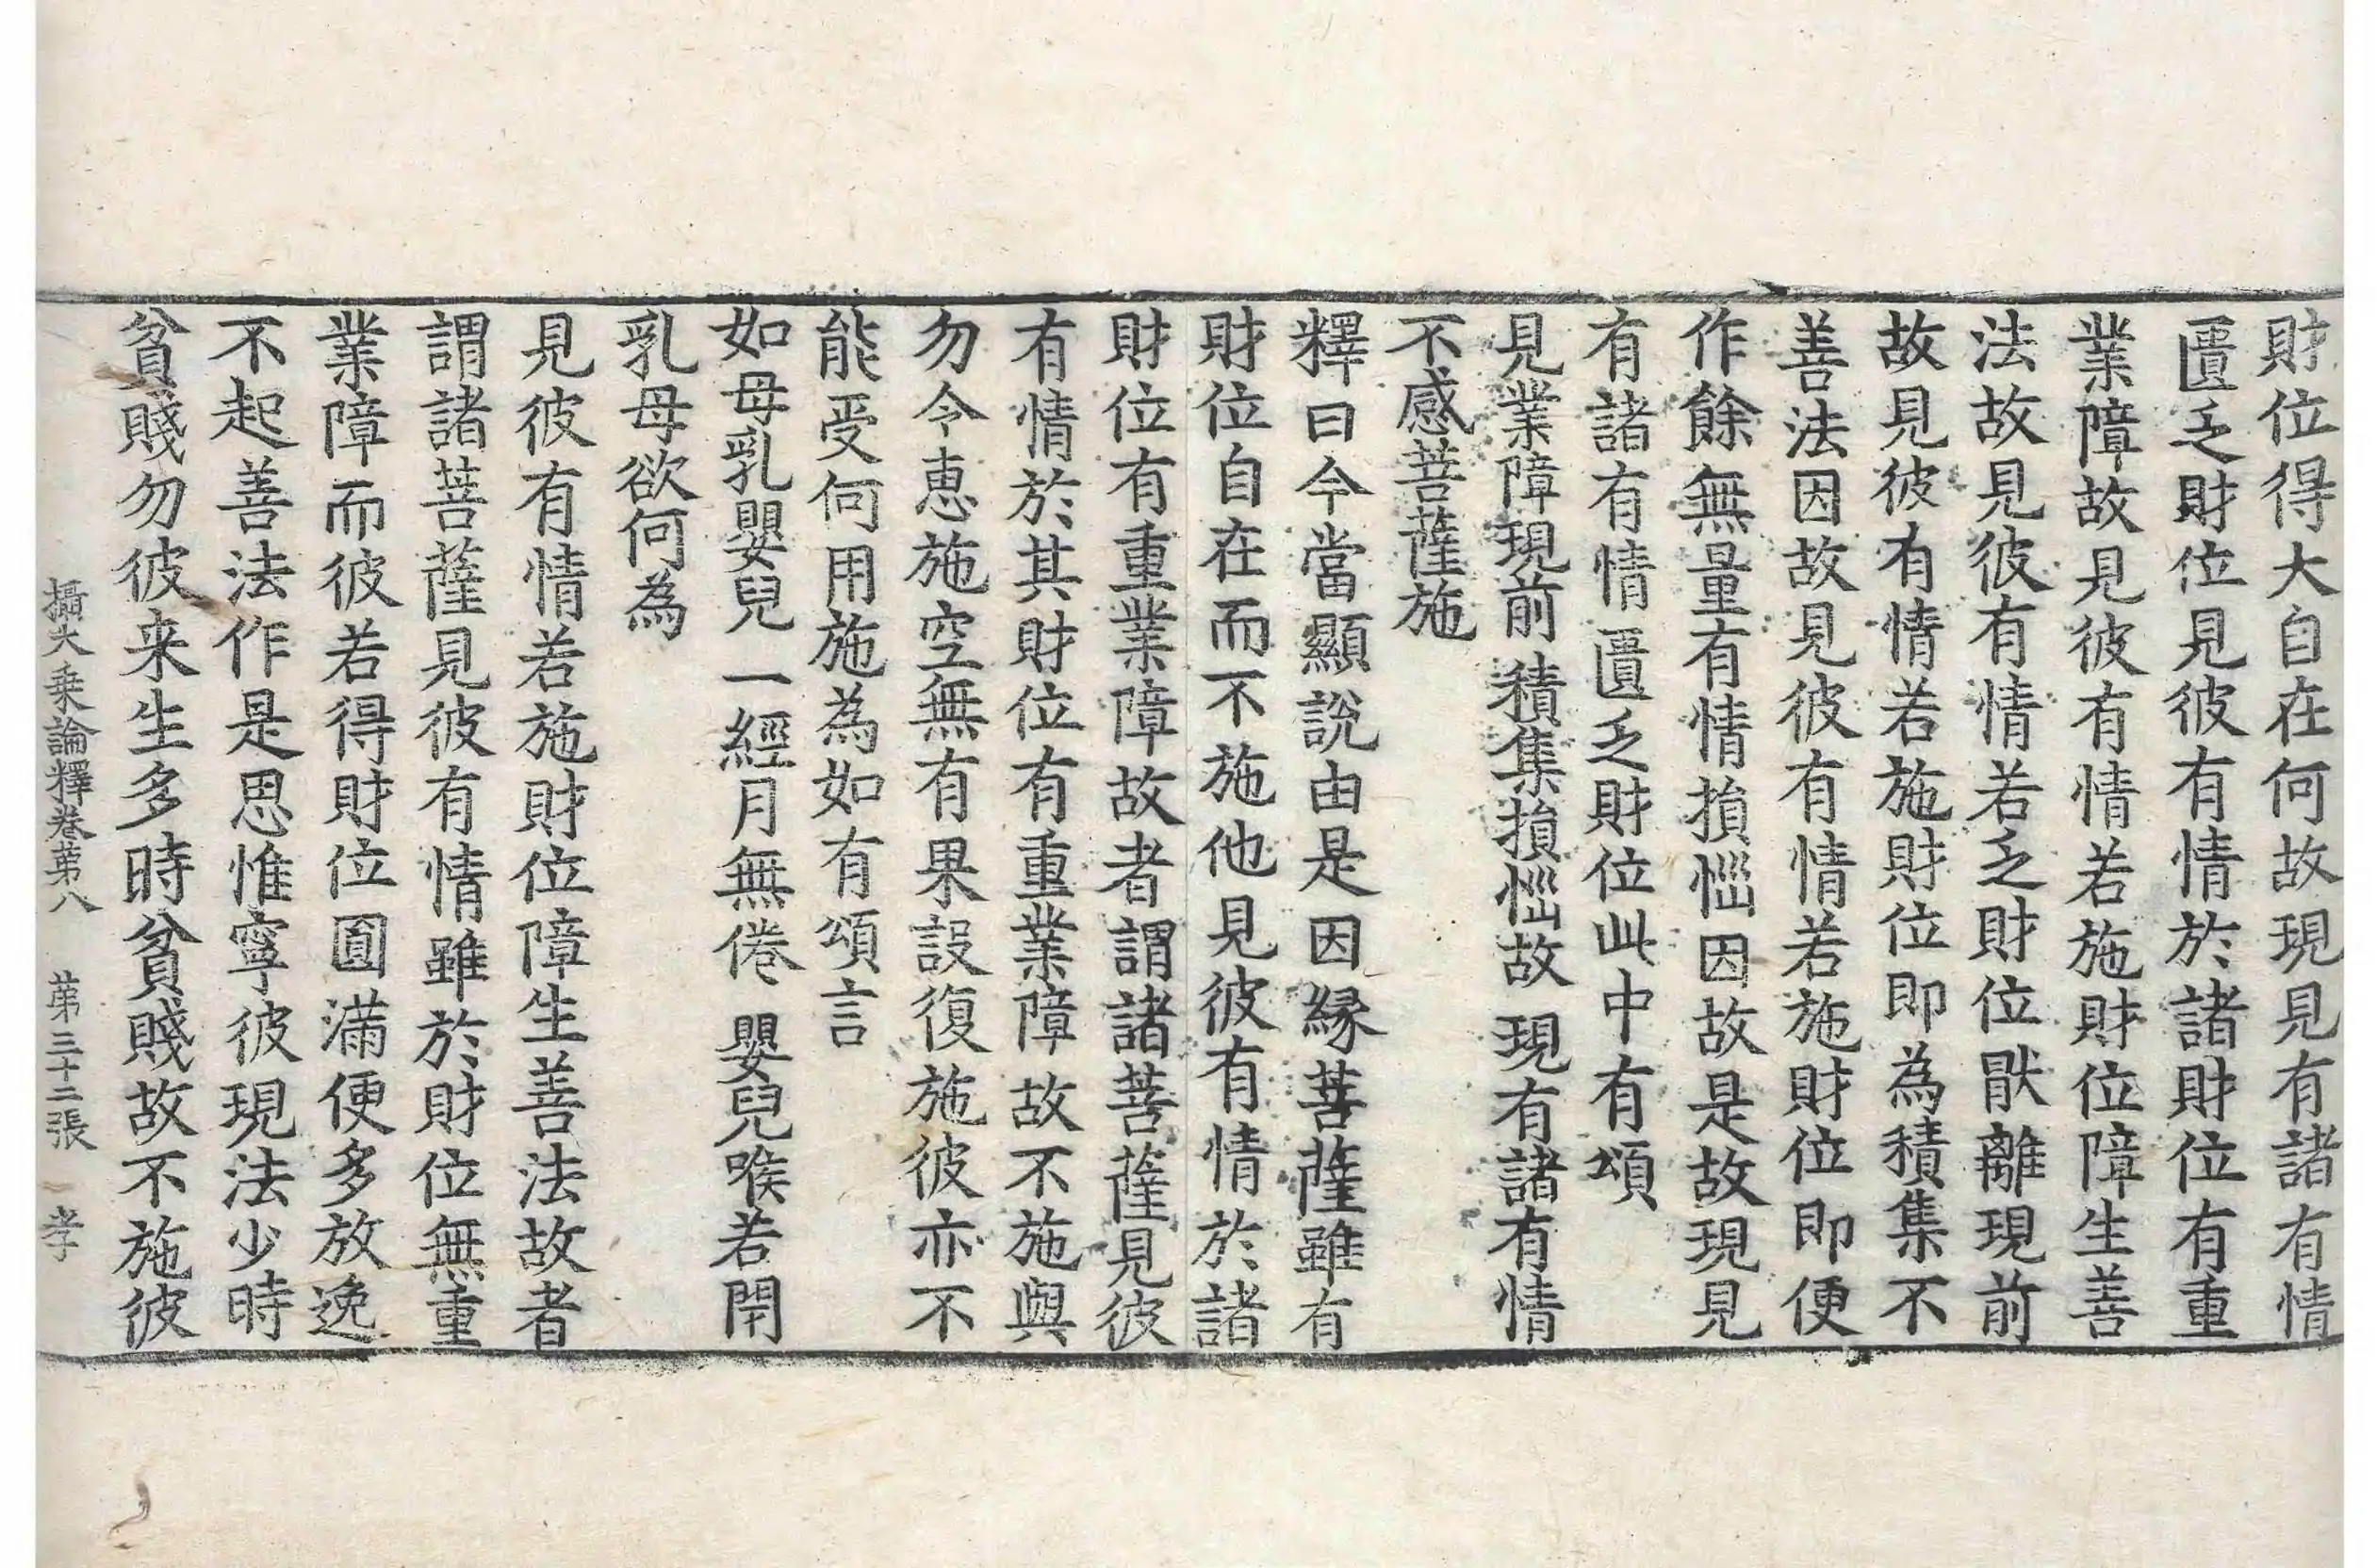 財位得大自在何故現見有諸有情
匱乏財位見彼有情於諸財位有重
業障故見彼有情若施財位障生善
法故見彼有情若乏財位猒離現前
故見彼有情若施財位即為積集不
善法因故見彼有情若施財位即便
作餘無量有情損惱因故是故現見
有諸有情匱乏財位此中有頌
見業障現前 積集損惱故 現有諸有情
不感菩薩施
釋曰今當顯說由是因緣菩薩雖有
財位自在而不施他見彼有情於諸
財位有重業障故者謂諸菩薩見彼
有情於其財位有重業障故不施與
勿令惠施空無有果設復施彼亦不
能受何用施為如有頌言
如母乳嬰兒 一經月無倦 嬰兒喉若閇
乳母欲何為
見彼有情若施財位障生善法故者
謂諸菩薩見彼有情雖於財位無重
業障而彼若得財位圓滿便多放逸
不起善法作是思惟寧彼現法少時
貧賤勿彼来生多時貧賤故不施彼
攝大乗論釋卷苐八 苐三十二張 孝